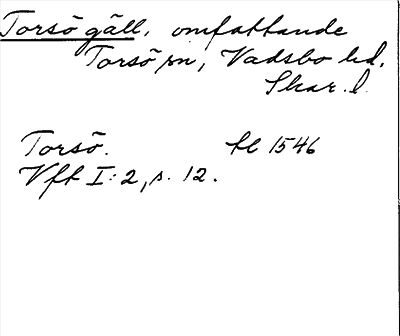 Torsö gäll, omfattande
Torsö sn, Vadsbo hd,
Skar. l.
Torsö. tl 1546
Vft I:2, s. 12.